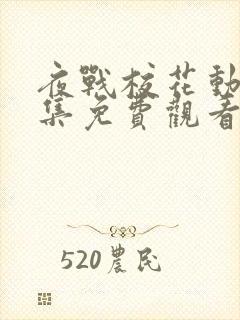 夜戰校花動
集免費觀看
520農民